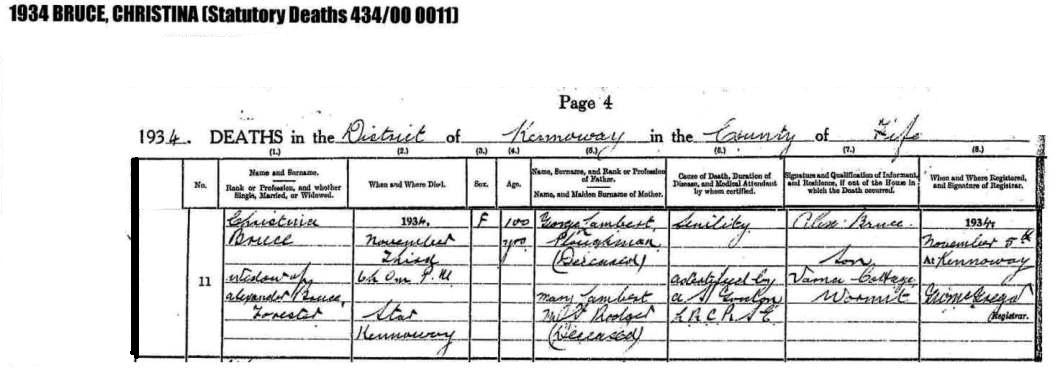 1934 BRUCE, CHRISTINA (Statutory Deaths 434/00 0011)
Page 4
1934. DEATHS in the District of Kennoway in the County of Fife
(1.) (2.) (3.) (4.) (5.) (6.) (7.) (8.)
No.
Name and Surname.
Rank or Profession, and whether
Single, Married, or Widowed.
When and Where Died.
Sex.
Age.
Name, Surname, and Rank or Profession
of Father.
Name, and Maiden Surname of Mother.
Cause of Death, Duration of
Disease, and Medical Attendant
by whom certified.
Signature and Qualification of Informant,
and Residence, if out of the House in
which the Death occurred.
When and Where Registered,
and Signature of Registrar.
11
Christina
Bruce
widow of
Alexander Bruce,
Forester
1934.
November
Third
6h 0m P.M
Star
Kennoway
F
100
yrs
George Lambert,
Ploughman
(Deceased)
Mary Lambert
M.S Rodger
(Deceased)
Senility
as certified by
L R C P S E
Alex Bruce
Son
Cottage
Wormit
1934.
November 5th
At Kennoway
Registrar.